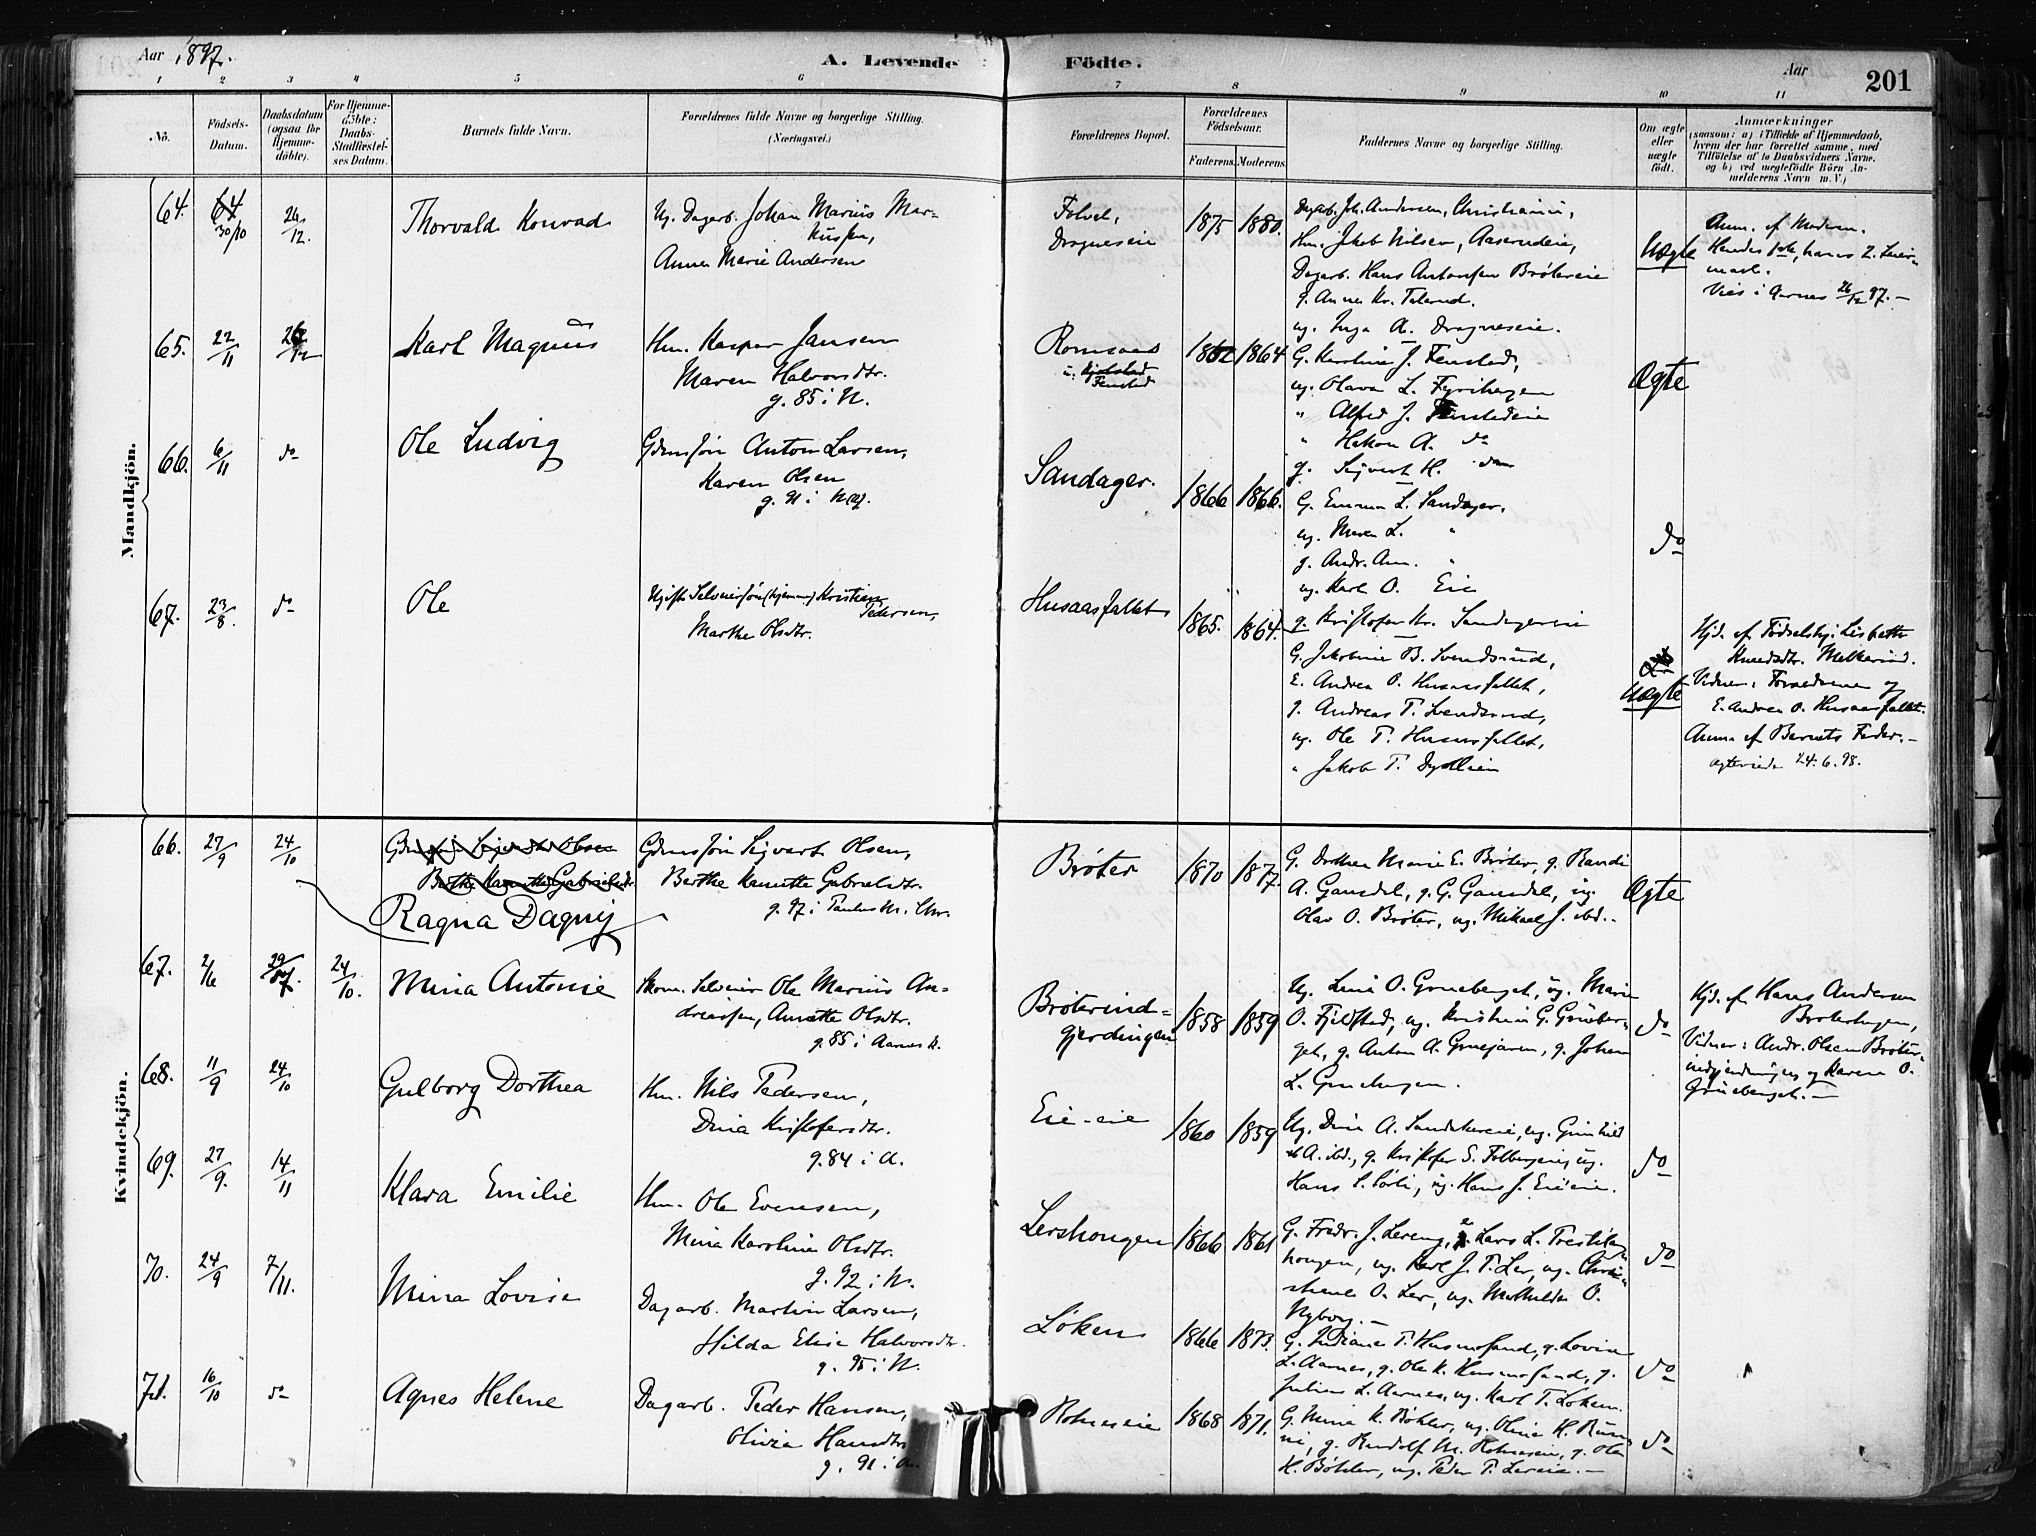 Aar 1897.
A. Levende Födte.
Aar
201
1 2 3 4 5 6 7 8 9 10 11
Nö.
Födsels-Datum.
Daabsdatum (ogsaa for Hjemme-döbte).
For Hjemme-döbte: Daabs-Stadfæstel-ses Datum.
Barnets fulde Navn.
Forældrenes fulde Navne og borgerlige Stilling. (Næringsvei.)
Forældrenes Bopæl.
Forældrenes Födselsaar.
Faderens. Moderens.
Faddernes Navne og borgerlige Stilling.
Om ægte eller uægte födt.
Anmærkninger
(saasom: a) i Tilfælde af Hjemmedaab,
hvem der har forrettet samme, med
Tilföielse af to Daabsvidners Navne.
og b) ved uægtefödte Börn An-
melderens Navn m. V.)
Mandkjön.
64. 30/10 26/12. Thorvald Konrad
Ug. Dagarb. Johan Marius Mar-
kussen,
Anna Marie Andersen
Dragneseie
1875 1880.
Dagarb. Joh. Andersen, Christiania,
Hm. Jakob Nilsen, Aaserudeie,
Dagarb. Hans Antonsen Brötereie
g. Anna Kr. Talerud.
ug. Inga A. Dragneseie.
Uægte
Anm. af Moderen.
Hendes 1ste, hans 2. Leier-
maal.
Viet i Aarnes 26/12 97.-
65. 22/11 26/12 Karl Magnus
Hm. Kasper Jansen
Maren Halvorsdtr.
g. 85 i N.
Romsaas
Fenstad
1862 1864
G. Karoline J. Fenstad,
ug. Olava L.
" Alfred J. Fenstadeie
" Hakon A. do
g. Sigvart H.
Ægte
66. 6/11 do Ole Ludvig
Gdmsön Anton Larsen,
Karen Olsen
g. 91 i
Sandager.
1866 1866.
G. Emma L. Sandager.
ug. Maren L. "
g. Andr. Am. "
ug. Karl O. Eie
g. Kristofer Kr. Sandagereie
do
67. 23/8. do Ole
Ugift Selveiersön (hjemme) Kristian
Pedersen,
Marthe Olsdtr.
Husaasfallet
1865. 1864.
G. Jakobine B. Svendsrud,
E. Andrea O. Husaasfallet,
g. Andreas T. Svendsrud,
ug. Ole P. Husaasfallet,
" Jakob T.
Uægte
Hjd. af Födselshj. Lisbeth
Knudsdtr. Melkerud.
Vidner: Forældrene og
E. Andrea O. Husaasfallet.
Anm. af Barnets Fader.-
24.6.98.
Kvindekjön.
66. 27/9 24/10
Ragna Dagny
Gdmsön Sigvart Olsen,
Berthe Kanutte Gabrielsdtr.
g. 97 i Paulus M. Chr.
Bröter
1870 1877.
G. Dorthea Marie E. Bröter, g. Randi
A. Gansdal, g. G. Gansdal, ug.
Olav O. Bröter, ug. Mikael J. ibd.-
Ægte
67. 2/6 24/10. Mina Antonie
Skom. Selveier Ole Marius An-
dreassen, Annette Olsdtr.
g. 85 i Aarnes k.
Bröterind-
gjerdingen
1858 1859
Ug. Lina O. Grueberget, ug. Marie
O. Fjeldstad, ug. Kristian G. Grueber-
get, g. Anton A. Gruejaren, g. Johan
L. Gruehagen.
do
Hjd. af Hans Andersen
Bröterhagen,
Vidner: Andr. Olsen Bröter-
indgjerdingen og Karen O.
Grueberget.-
68. 11/9 24/10 Gulborg Dorthea
Hm. Nils Pedersen,
Dina Kristofersdtr.
g. 84 i A.
Eie-eie
1860 1859
Ug. Dina A. Sandakereie, ug. Gunhild
A. ibd., g. Kristofer S. Folbergeie, ug.
Hans L. Sörli, ug. Hans J. Eieeie.
do
69. 27/9. 14/11 Klara Emilie
Hm. Ole Evensen,
Mina Karoline Olsdtr.
g. 92 i N.
Lershaugen
1866 1861
G. Fredr. J. Lereng, Lars L.
haugen, ug. Karl J. T. Ler, ug. Christi-
O. Ler, ug. Mathilde O.
Nyborg.-
do
70. 24/9 7/11. Mina Lovise
Dagarb. Martin Larsen,
Hilda Elise Halvorsdtr.
g. 95 i N.
Löken
1866 1873.
G. Indiane T. Husmosand, g. Lovise
L. Aarnes, g. Ole K. Husmosand, g.
Julius L. Aarnes, ug. Karl T. Löken.
do
71. 16/10 do Agnes Helene
Dagarb. Peder Hansen,
Olivia Hansdtr.
g. 91 i A.
Rolmseie
1868 1871.
G. Mina K. Böhler, ug. Oline H.
g. Rudolf M. g. Ole
H. Böhler, ug. Peder P. Lereie.-
do